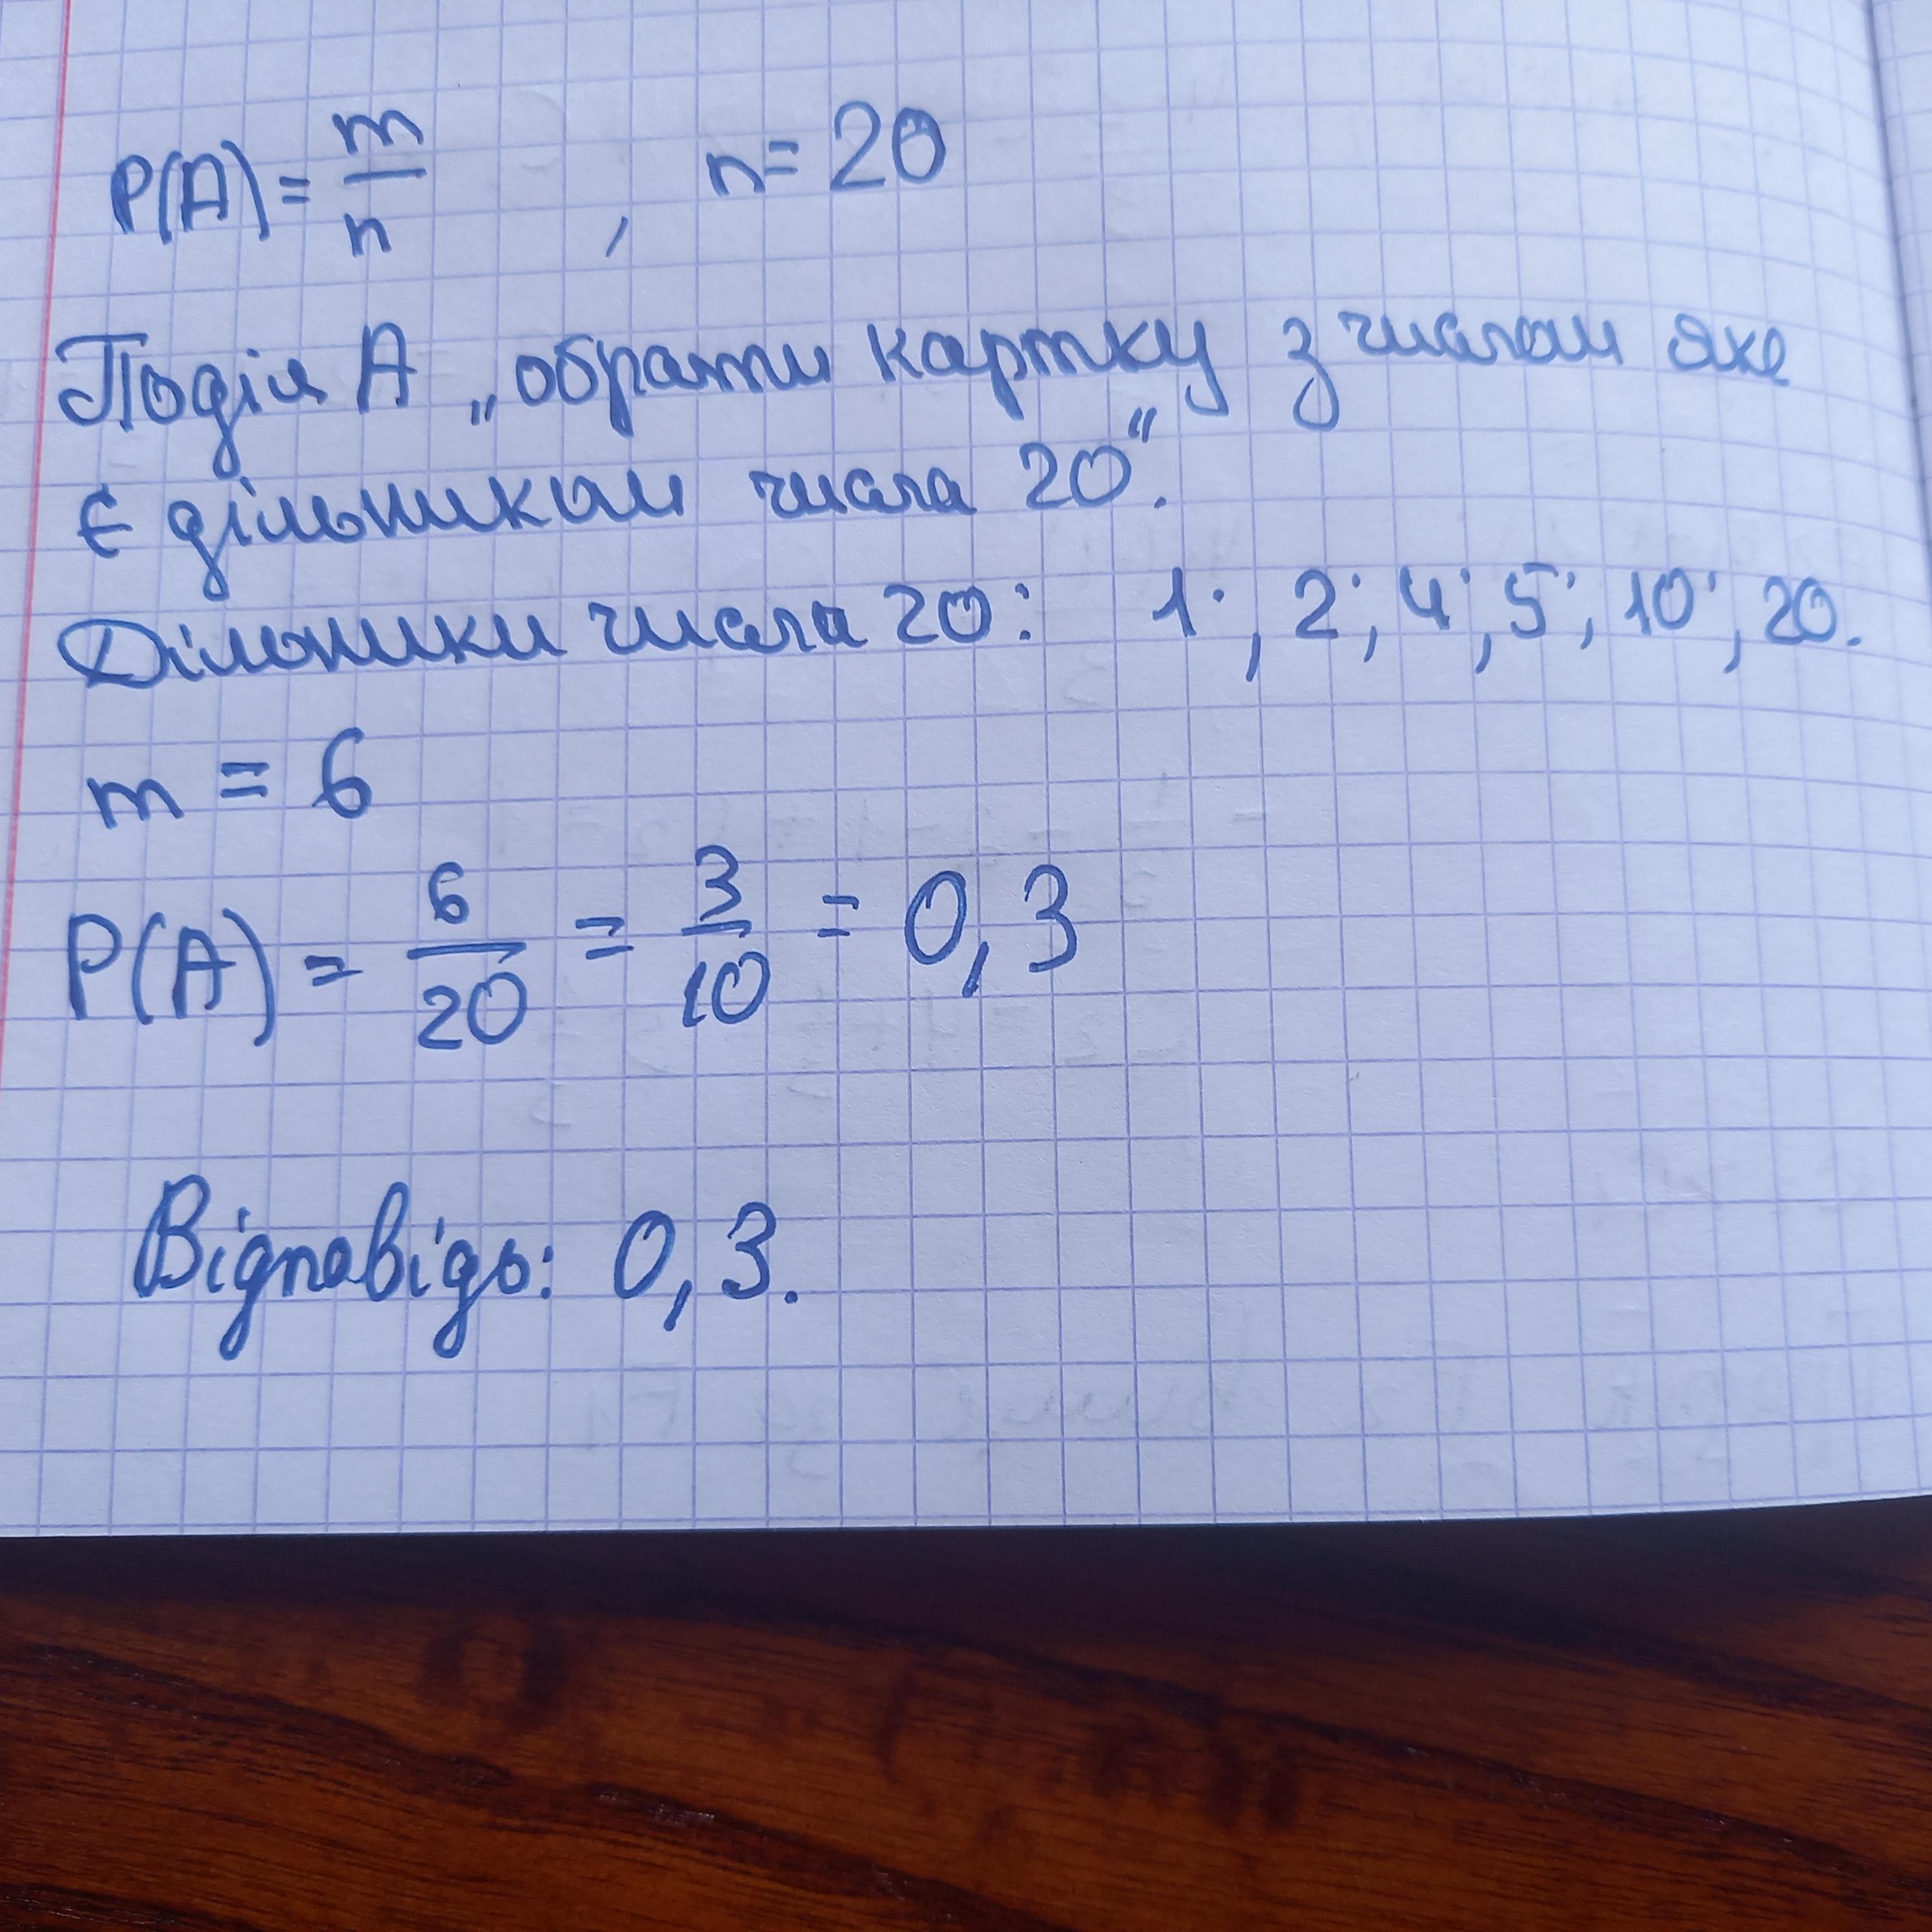 P(A) = m/n , n = 20
Подія А „обрати картку з числом яке
є дільником числа 20“.
Дільники числа 20: 1; 2; 4; 5; 10; 20.
m = 6
P(A) = 6/20 = 3/10 = 0,3
Відповідь: 0,3.